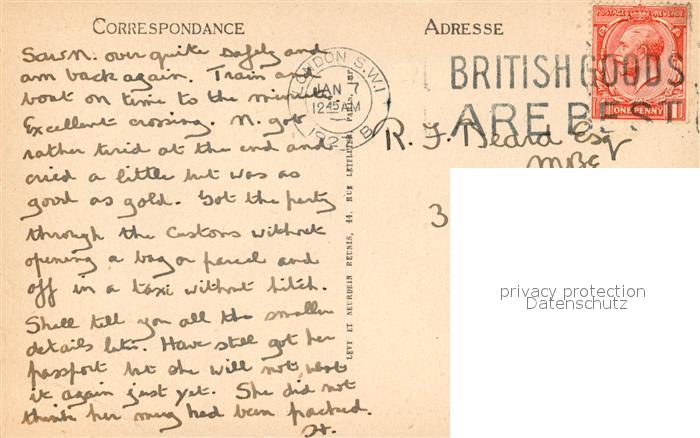 CORRESPONDANCE
Saw N. over quite safely and
am back again. Train and
boat on time to the minute
Excellent crossing. N. got
rather tired at the end and
cried a little but was as
good as gold. Got the party
through the Customs without
opening a bag or parcel and
off in a taxi without hitch.
Shall tell you all the smaller
details later. Have still got her
passport but she will not want
it again just yet. She did not
think her mug had been packed.
H.
LEVY ET NEURDEIN REUNIS, 44, RUE LETELLIER, PARIS
ADRESSE
LONDON S.W.1
JAN 7
12 45 AM
192
B
BRITISH GOODS
ARE BEST
POSTAGE REVENUE
ONE PENNY
R. J. Beard Esq
MBE
3
privacy protection
Datenschutz